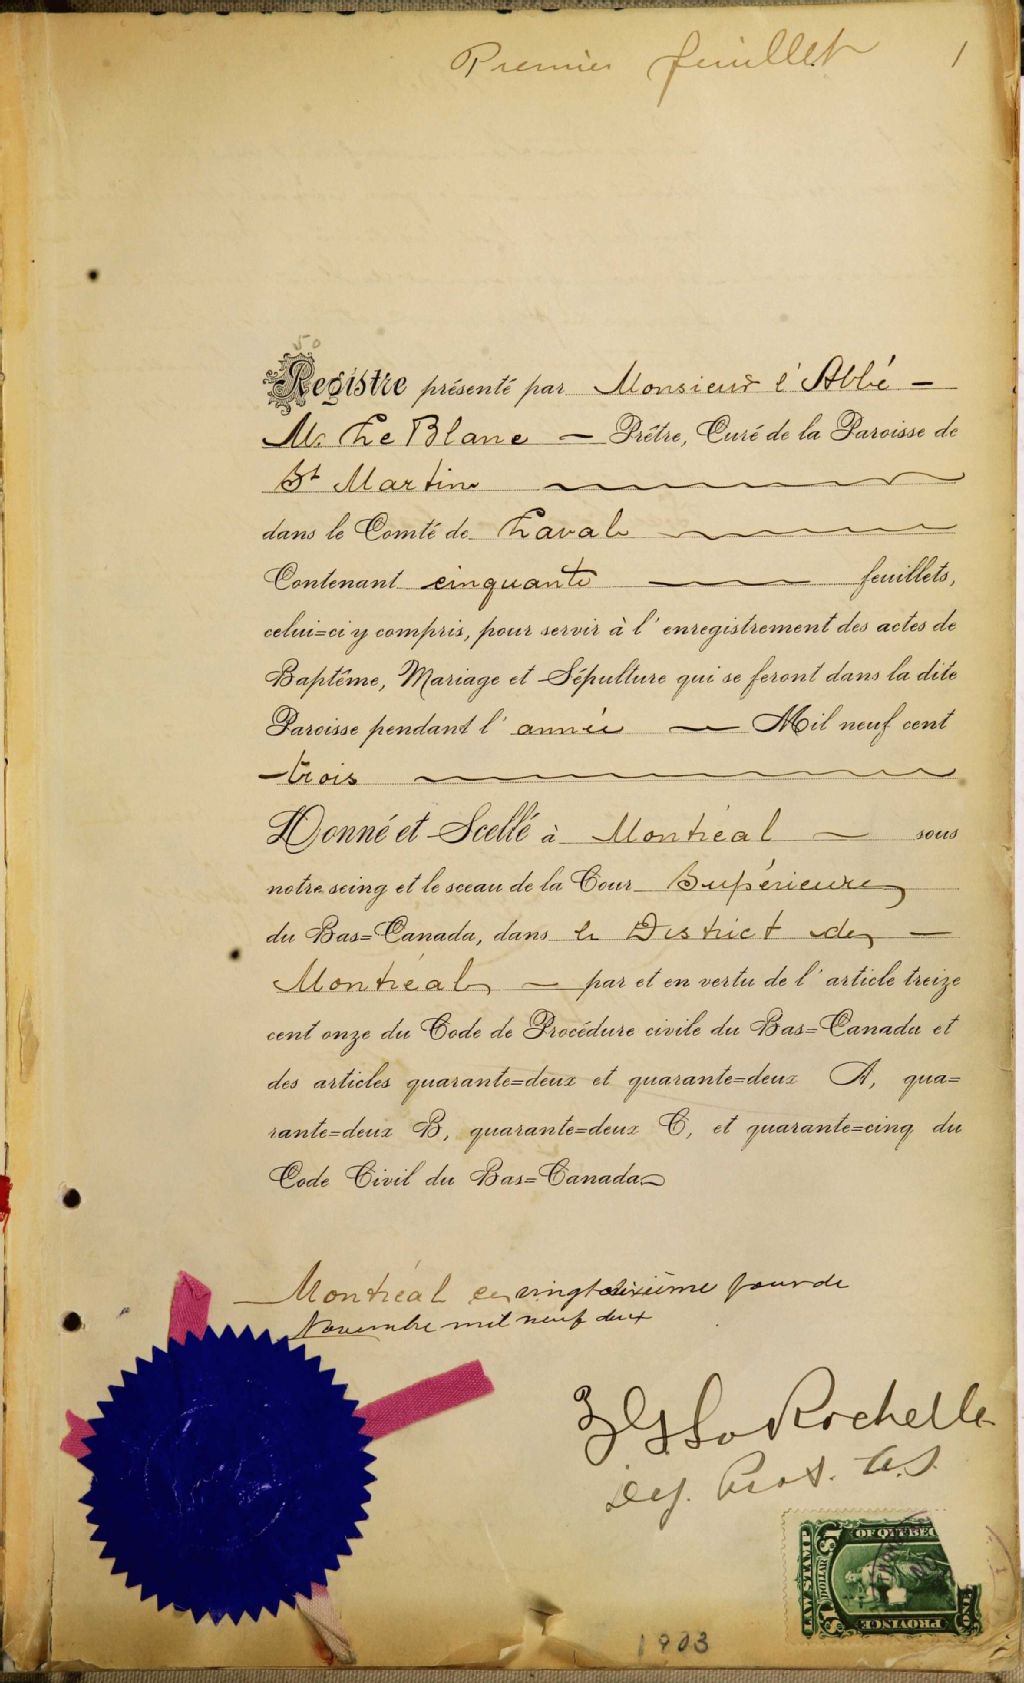 Premier feuillet 1
50
Registre présenté par Monsieur l'Abbé —
M. Le Blanc — Prêtre, Curé de la Paroisse de
St Martin
dans le Comté de Laval
Contenant cinquante — feuillets,
celui=ci y compris, pour servir à l'enregistrement des actes de
Baptême, Mariage et Sépulture qui se feront dans la dite
Paroisse pendant l'année — Mil neuf cent
trois
Donné et Scellé à Montréal — sous
notre seing et le sceau de la Cour Supérieure
du Bas=Canada, dans le District de —
Montréal — par et en vertu de l'article treize
cent onze du Code de Procédure civile du Bas=Canada et
des articles quarante=deux et quarante=deux A, qua=
rante=deux B, quarante=deux C, et quarante=cinq du
Code Civil du Bas=Canada
Montréal ce vingt sixième jour de
Novembre mil neuf deux
LaRochelle
Dep. Prot. C.S.
LAW STAMP
$1 DOLLAR $1
PROVINCE
OF QUEBEC
ONE
1903